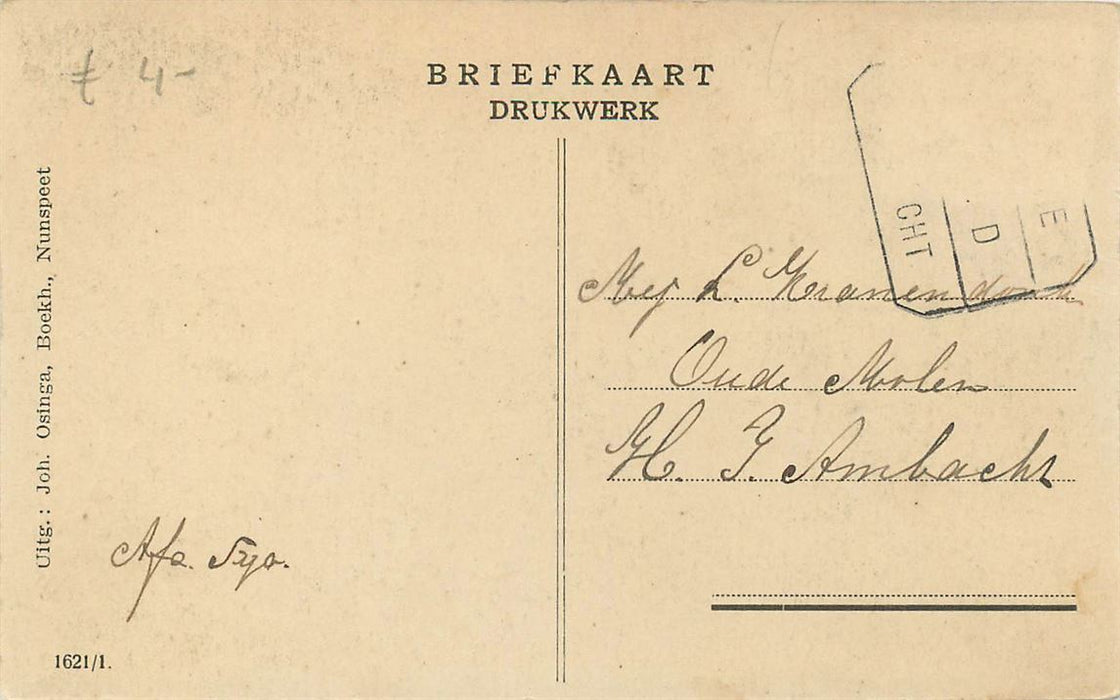 BRIEFKAART
DRUKWERK
4-
Uitg.: Joh. Osinga, Boekh., Nunspeet
1621/1.
CHT
D
E
Mej L. Kranendonk
Oude Molen
H. I. Ambacht
Afz.